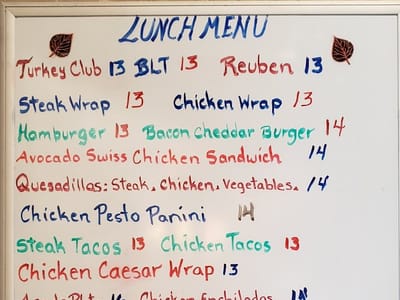 LUNCH MENU
Turkey Club 13 BLT 13 Reuben 13
Steak Wrap 13 Chicken Wrap 13
Hamburger 13 Bacon Cheddar Burger 14
Avocado Swiss Chicken Sandwich 14
Quesadillas: Steak, Chicken, Vegetables, 14
Chicken Pesto Panini 14
Steak Tacos 13 Chicken Tacos 13
Chicken Caesar Wrap 13
Chicken Enchiladas